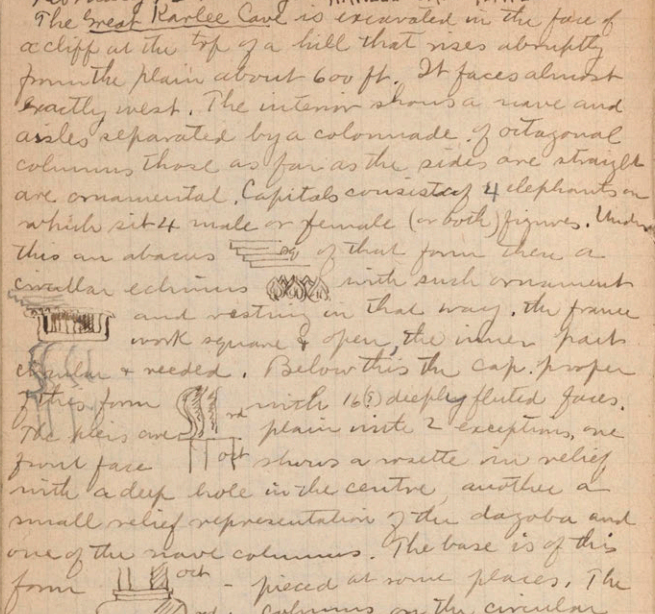 The Great Karlee Cave is excavated in the face of
a cliff at the top of a hill that rises abruptly
from the plain about 600 ft. It faces almost
exactly west. The interior shows a nave and
aisles separated by a colonnade of octagonal
columns those as far as the sides are straight
are ornamental. Capitals consist of 4 elephants on
which sit 4 male or female (or both) figures. Under
this an abacus of that form then a
circular echinus with such ornament
and resting in that way. the frame
work square & open, the inner part
circular & reeded. Below this the cap. proper
of this form rd with 16(?) deeply fluted faces.
The piers are plain with 2 exceptions, one
front face oct shows a rosette in relief
with a deep hole in the centre, another a
small relief representation of the dagoba and
one of the nave columns. The base is of this
form oct - pieced at some places. The
columns on the circular